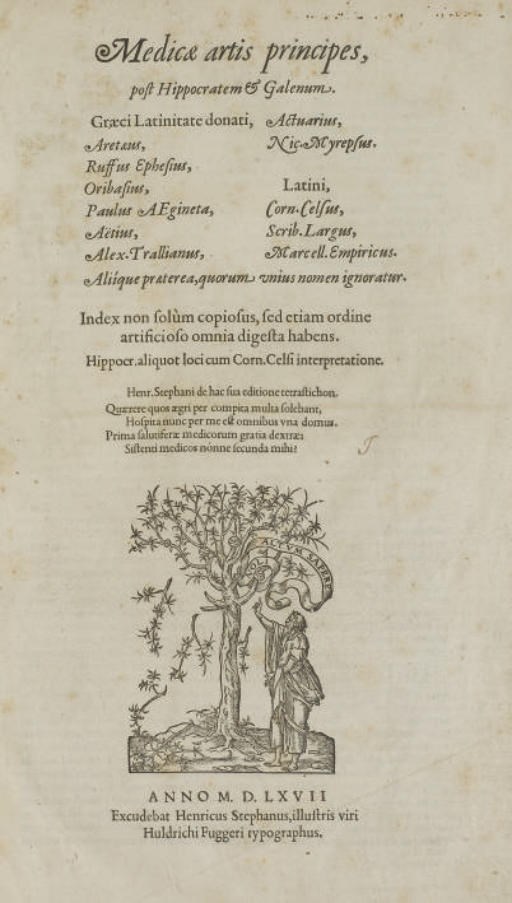 Medicæ artis principes,
post Hippocratem & Galenum.
Græci Latinitate donati,
Aretæus,
Ruffus Ephesius,
Oribasius,
Paulus AEgineta,
Aëtius,
Alex. Trallianus,
Actuarius,
Nic. Myrepsus.
Latini,
Corn. Celsus,
Scrib. Largus,
Marcell. Empiricus.
Aliíque præterea, quorum vnius nomen ignoratur.
Index non solùm copiosus, sed etiam ordine
artificioso omnia digesta habens.
Hippocr. aliquot loci cum Corn. Celsi interpretatione.
Henr. Stephani de hac sua editione tetrastichon.
Quærere quos ægri per compita multa solebant,
Hospita nunc per me est omnibus vna domus.
Prima salutiferæ medicorum gratia dextræ:
Sistenti medicos nónne secunda mihi?
ALTVM SAPERE
ANNO M. D. LXVII
Excudebat Henricus Stephanus, illustris viri
Huldrichi Fuggeri typographus.